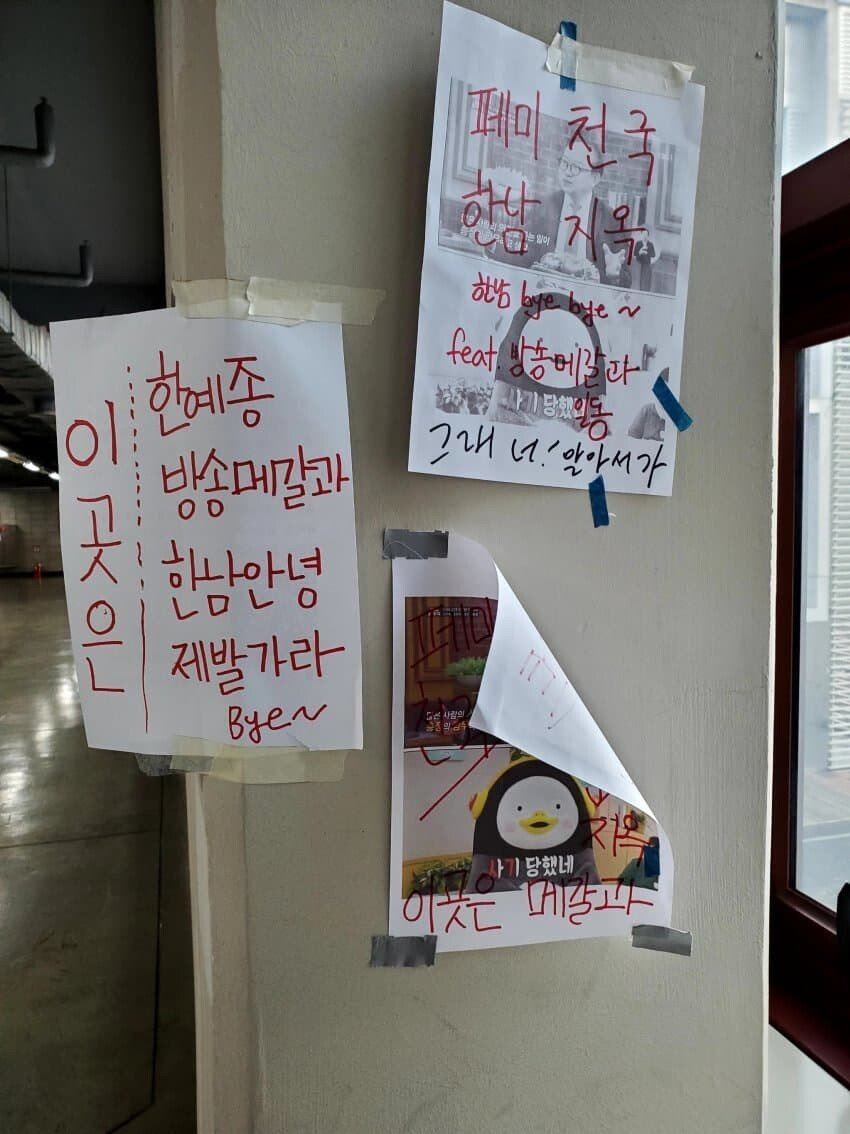 이곳은
한예종
방송메갈과
한남안녕
제발가라
Bye~
페미 천국
한남 지옥
한남 bye bye ~
feat. 방송메갈과
일동
사기 당했
그래 너! 알아서가
페미
사람의
지옥
사기 당했네
이곳은 메갈과